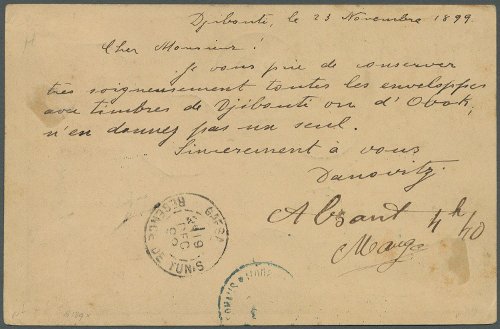 Djibouti, le 23 Novembre 1899.
Cher Monsieur!
Je vous prie de conserver
très soigneusement toutes les enveloppes
avec timbres de Djibouti ou d'Obok,
n'en donnez pas un seul.
Sincèrement à vous
Danovitz.
Absant 4h40
GAFSA
19
DEC
99
REGENCE DE TUNIS